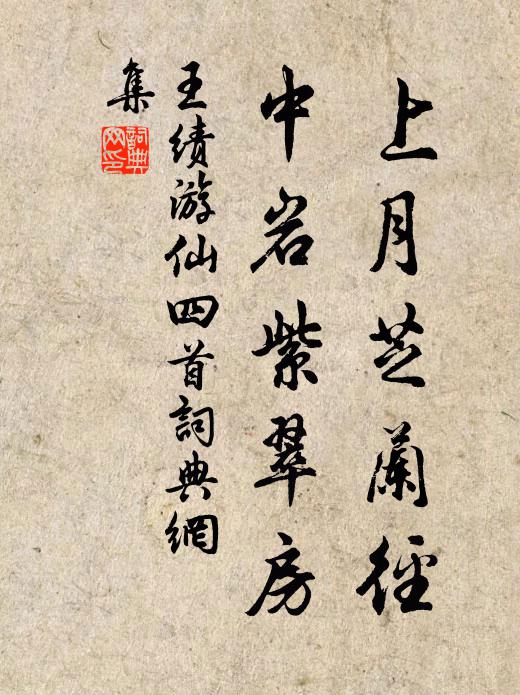 上月芝蘭徑
中岩紫翠房
王績游仙四首詞典網
集
詞典
网印